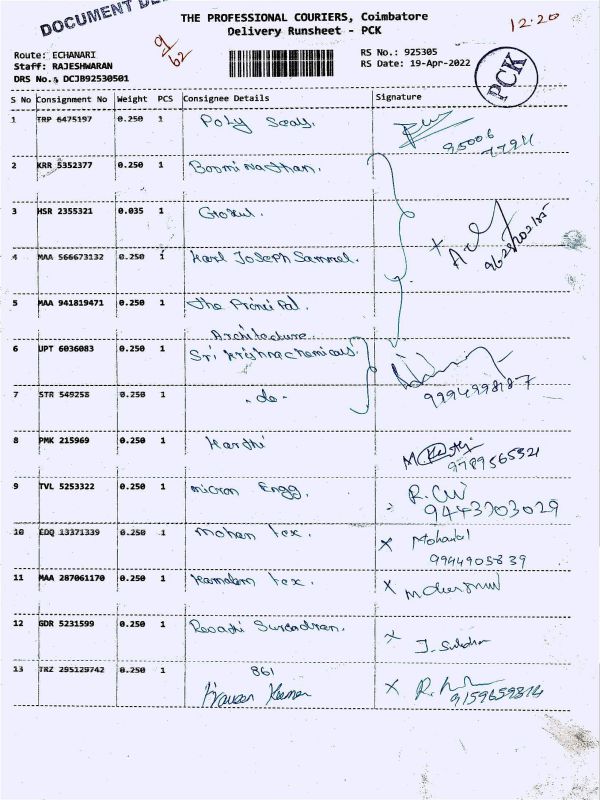 DOCUMENT DE
THE PROFESSIONAL COURIERS, Coimbatore
Delivery Runsheet - PCK
12.20
9/62
Route: ECHANARI
Staff: RAJESHWARAN
DRS No.: DCJB92530501
RS No.: 925305
RS Date: 19-Apr-2022
PCK
S No Consignment No Weight PCS Consignee Details Signature
1 TRP 6475197 0.250 1 Poly Seals. 95006 77911
2 KRR 5352377 0.250 1 Boominathan.
3 HSR 2355321 0.035 1 Gokul.
4 MAA 566673132 0.250 1 Karl Joseph Sammel.
5 MAA 941819471 0.250 1 The Principal.
Architecture.
6 UPT 6036083 0.250 1 Sri Krishna chemicals.
9994998187
7 STR 549258 0.250 1 - do -
8 PMK 215969 0.250 1 Karthi
9789565321
9 TVL 5253322 0.250 1 micron Engg.
9443703029
10 EDQ 13371339 0.250 1 mohan tex. x
9944905839
11 MAA 287061170 0.250 1 Kamalam tex. x
12 GDR 5231599 0.250 1 x
13 TRZ 295129742 0.250 1 861
Praveen Kumar x 9159659814